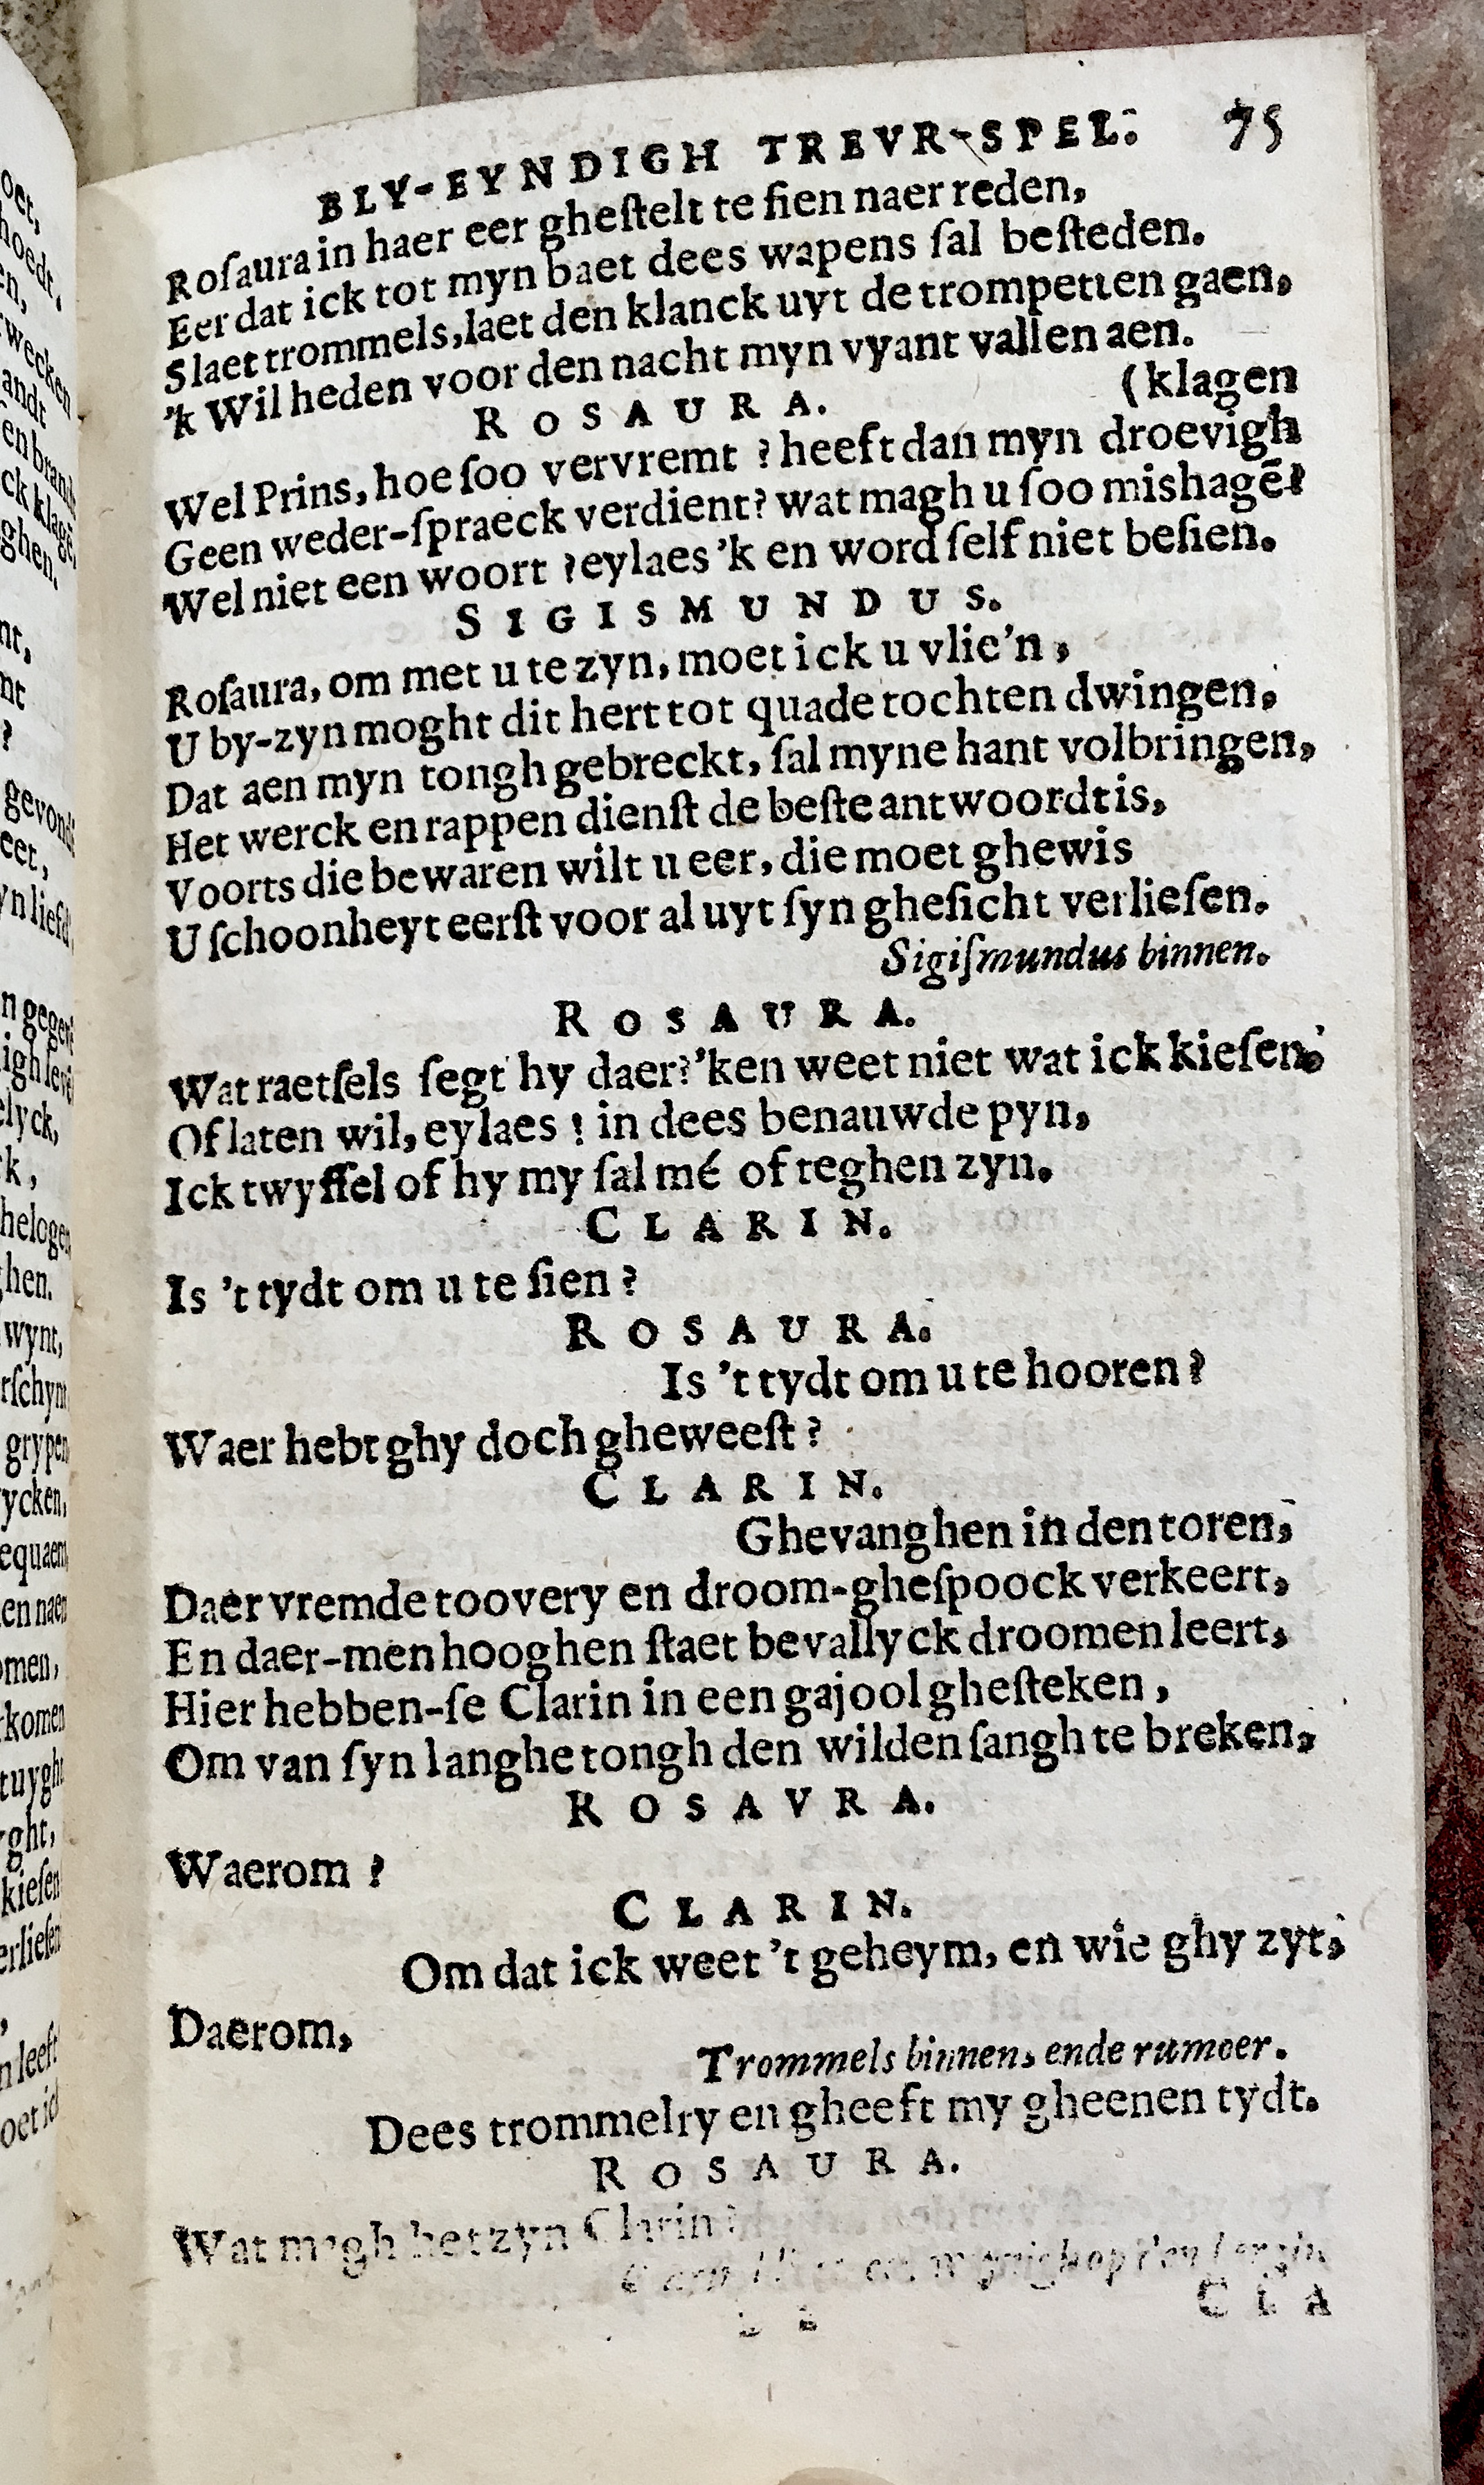 BLY-EYNDIGH TREVR-SPEL. 75
Roſaura in haer eer gheſtelt te ſien naer reden,
Eer dat ick tot myn baet dees wapens ſal beſteden.
Slaet trommels, laet den klanck uyt de trompetten gaen,
'k Wil heden voor den nacht myn vyant vallen aen.
ROSAURA. (klagen
Wel Prins, hoe ſoo vervremt ? heeft dan myn droevigh
Geen weder-ſpraeck verdient? wat magh u ſoo mishagē?
Wel niet een woort ? eylaes 'k en word ſelf niet beſien.
SIGISMUNDUS.
Roſaura, om met u te zyn, moet ick u vlie'n,
U by-zyn moght dit hert tot quade tochten dwingen,
Dat aen myn tongh gebreckt, ſal myne hant volbringen,
Het werck en rappen dienſt de beſte antwoordt is,
Voorts die bewaren wilt u eer, die moet ghewis
U ſchoonheyt eerſt voor al uyt ſyn gheſicht verlieſen.
Sigiſmundus binnen.
ROSAURA.
Wat raetſels ſegt hy daer? 'ken weet niet wat ick kieſen.
Of laten wil, eylaes ! in dees benauwde pyn,
Ick twyffel of hy my ſal mé of teghen zyn.
CLARIN.
Is 't tydt om u te ſien ?
ROSAURA.
Is 't tydt om u te hooren ?
Waer hebt ghy doch gheweeſt ?
CLARIN.
Ghevanghen in den toren,
Daer vremde toovery en droom-gheſpoock verkeert,
En daer-men hooghen ſtaet bevallyck droomen leert,
Hier hebben-ſe Clarin in een gajool gheſteken,
Om van ſyn langhe tongh den wilden ſangh te breken,
ROSAVRA.
Waerom ?
CLARIN.
Om dat ick weet 't geheym, en wie ghy zyt,
Daerom,
Trommels binnen, ende rumoer.
Dees trommelry en gheeft my gheenen tydt.
ROSAURA.
Wat magh het zyn Clarin ?
CLA